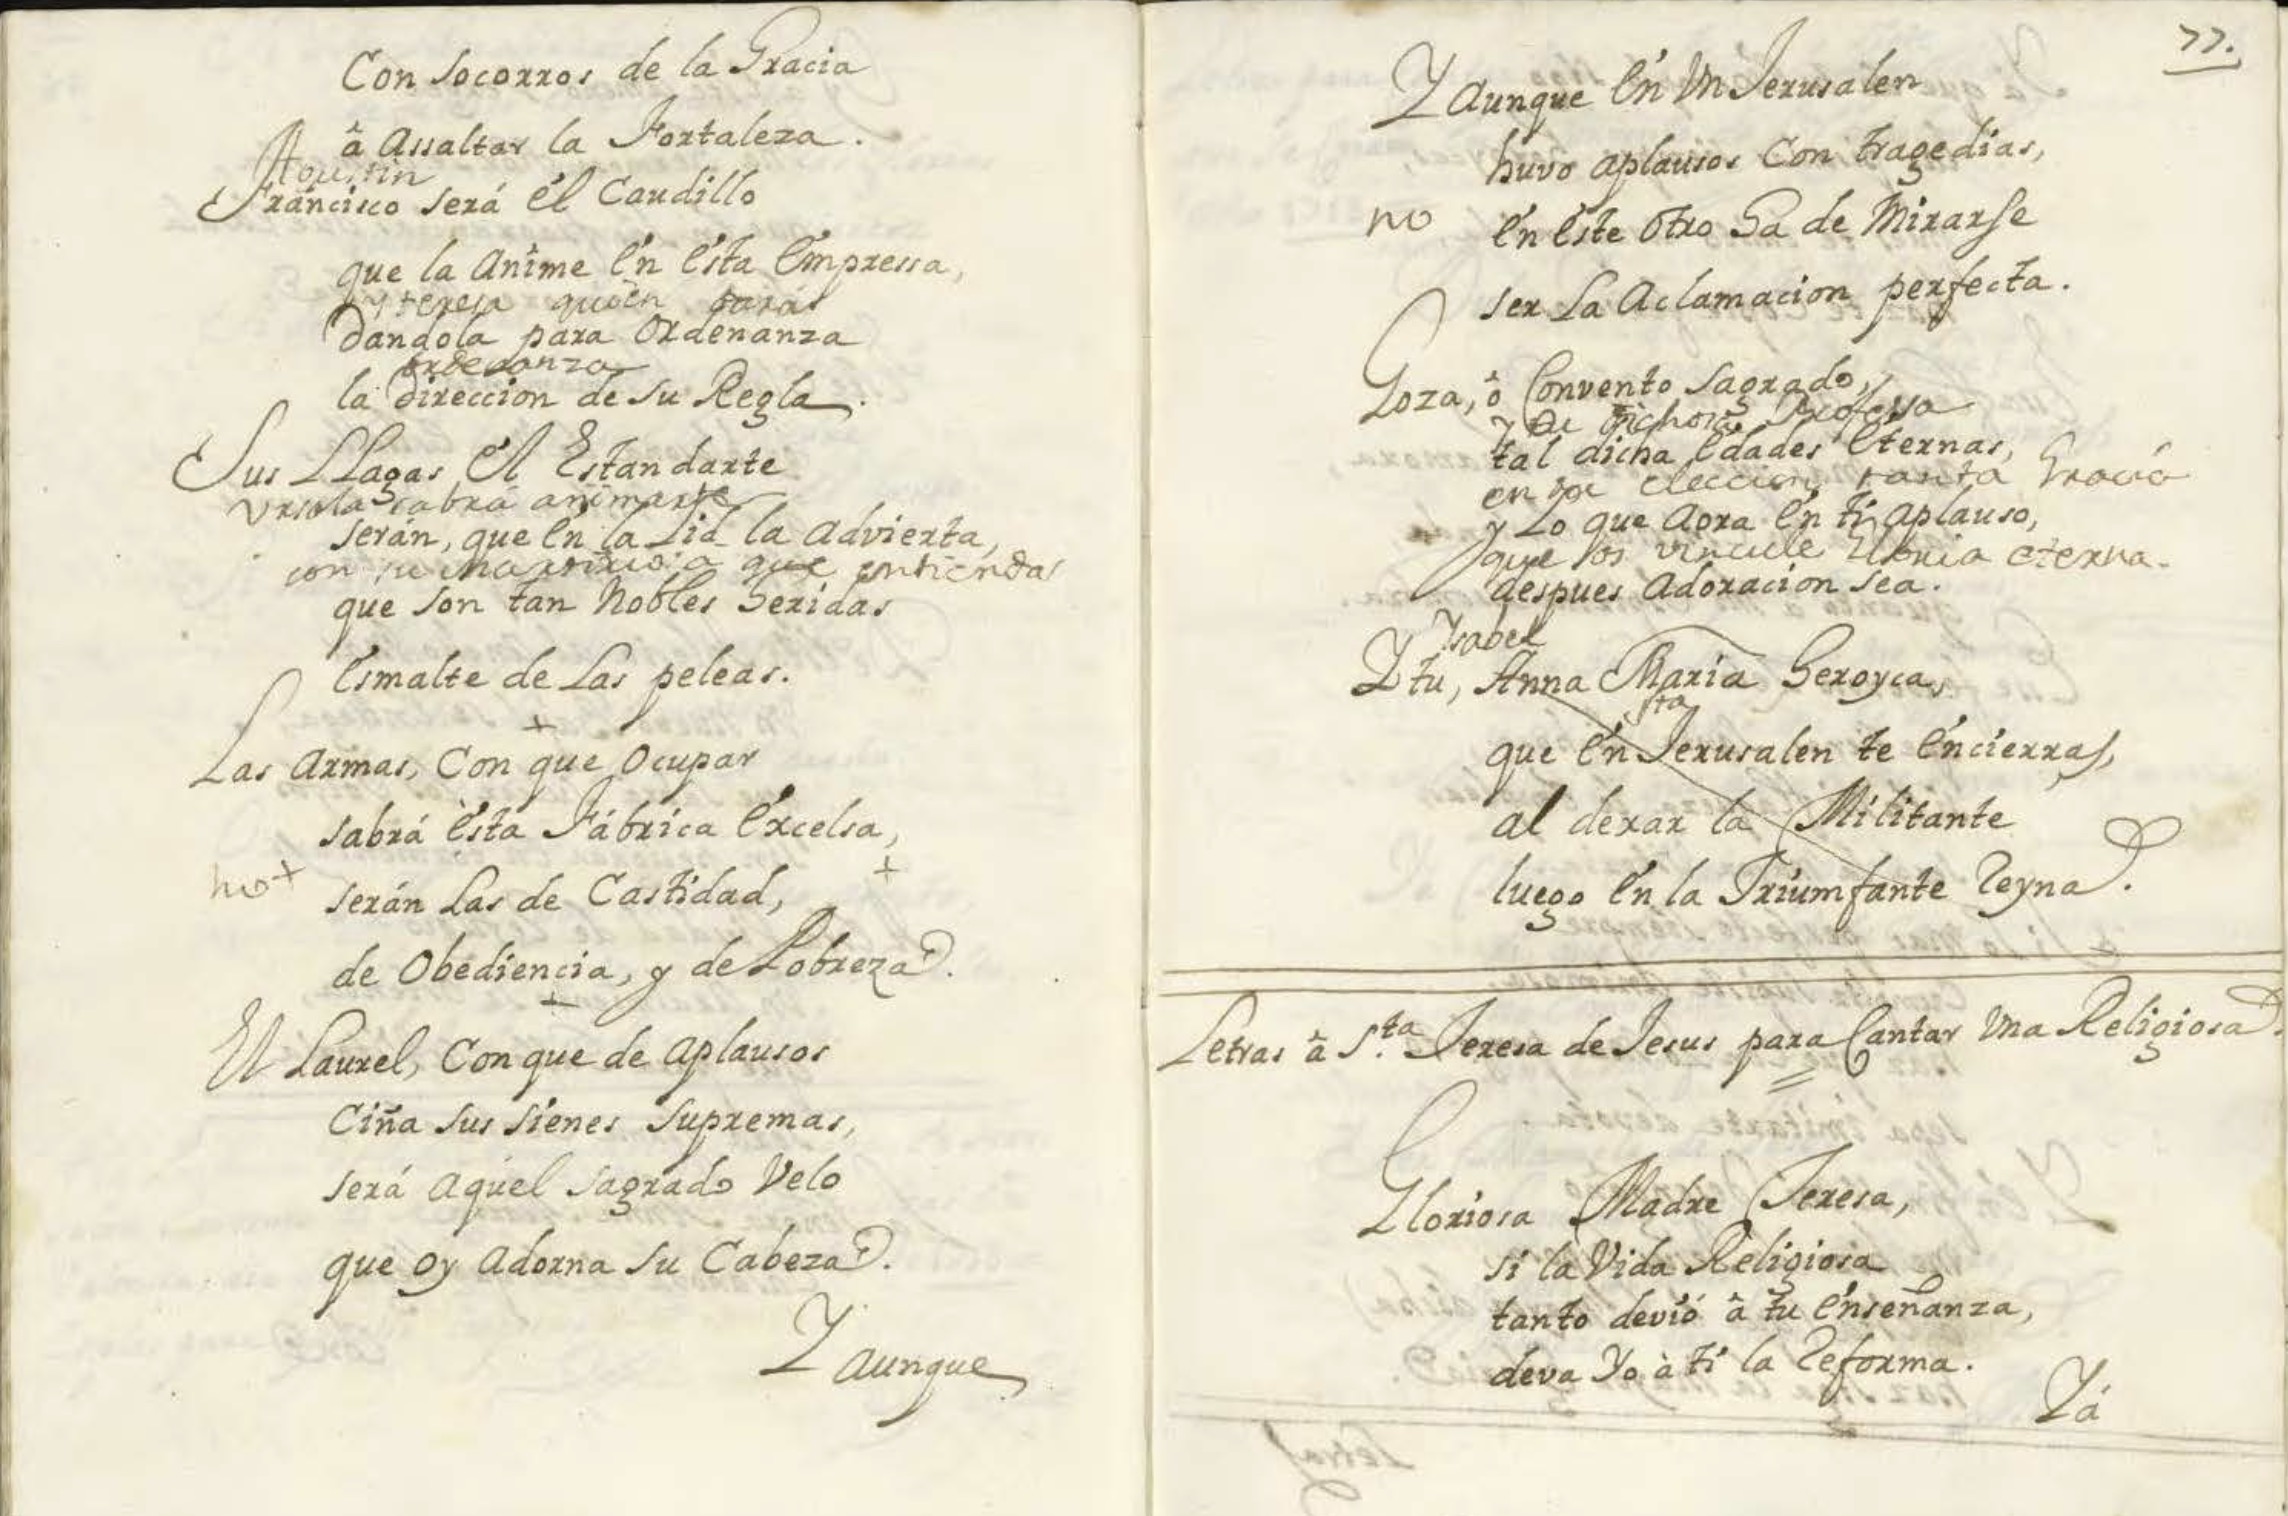 Con socorros de la Gracia
â Assaltar la Fortaleza.
Agustin
Fráncisco será él Caudillo
que la Anime én ésta émpressa,
y teresa quien
Dandola para Ordenanza
ordenanza
la Direccion de su Regla.
Sus LLagas él Estandarte
Ursula sabrá animarse
serán, que én la Lid la advierta,
con su martirio a que entienda
que son tan Nobles heridas
ésmalte de Las peleas.
+
Las Armas, Con que Ocupar
sabrá ésta Fábrica éxcelsa,
no + serán Las de Castidad, +
de Obediencia, y de Pobreza.
+
El Laurel, Con que de aplausos
Ciña sus sienes supremas,
será aquel sagrado Velo
que oy Adorna su Cabeza.
Y aunque
77.
Y aunque én Un Jerusalen
huvo aplausos Con tragedias,
no én éste Otro ha de Mirarse
ser La Aclamacion perfecta.
Goza, ô Convento sagrado,
y Professa
tal dicha édades éternas,
en eleccion tanta Gracia
y Lo que Aora én ti aplauso,
que os vincule Gloria eterna.
despues Adoracion sea.
Ysabel
Y tu, Anna Maria heroyca,
sta
que én Jerusalen te éncierras,
al dexar la Militante
luego én la Triumfante Reyna.
Letras â S.ta Teresa de Jesus para Cantar Una Religiosa.
Gloriosa Madre Teresa,
si la Vida Religiosa
tanto devió â tu énseñanza,
deva Yo à ti la Reforma.
Yá